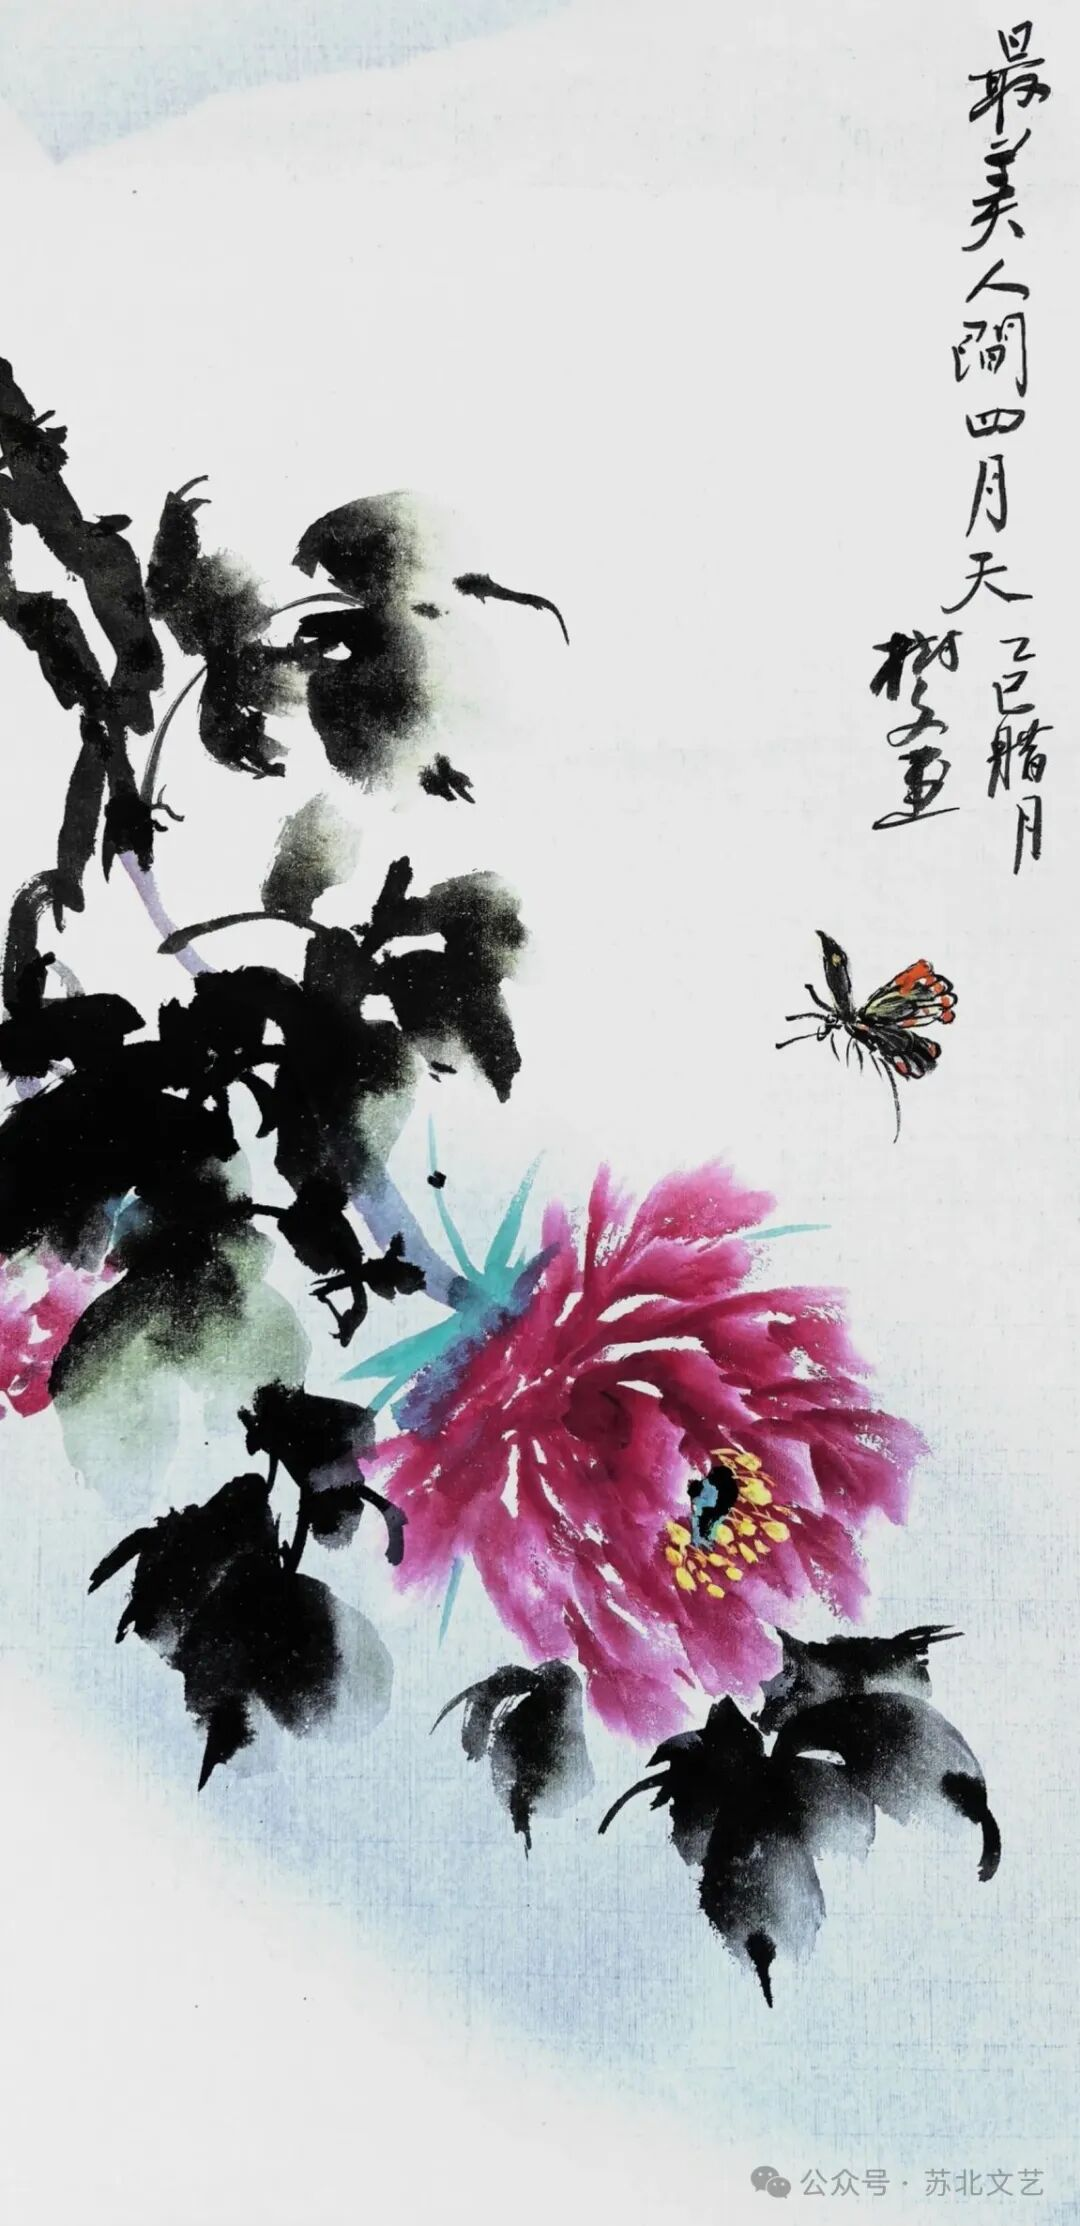 最美人間四月天
乙巳腊月
樹文画
公众号·苏北文艺